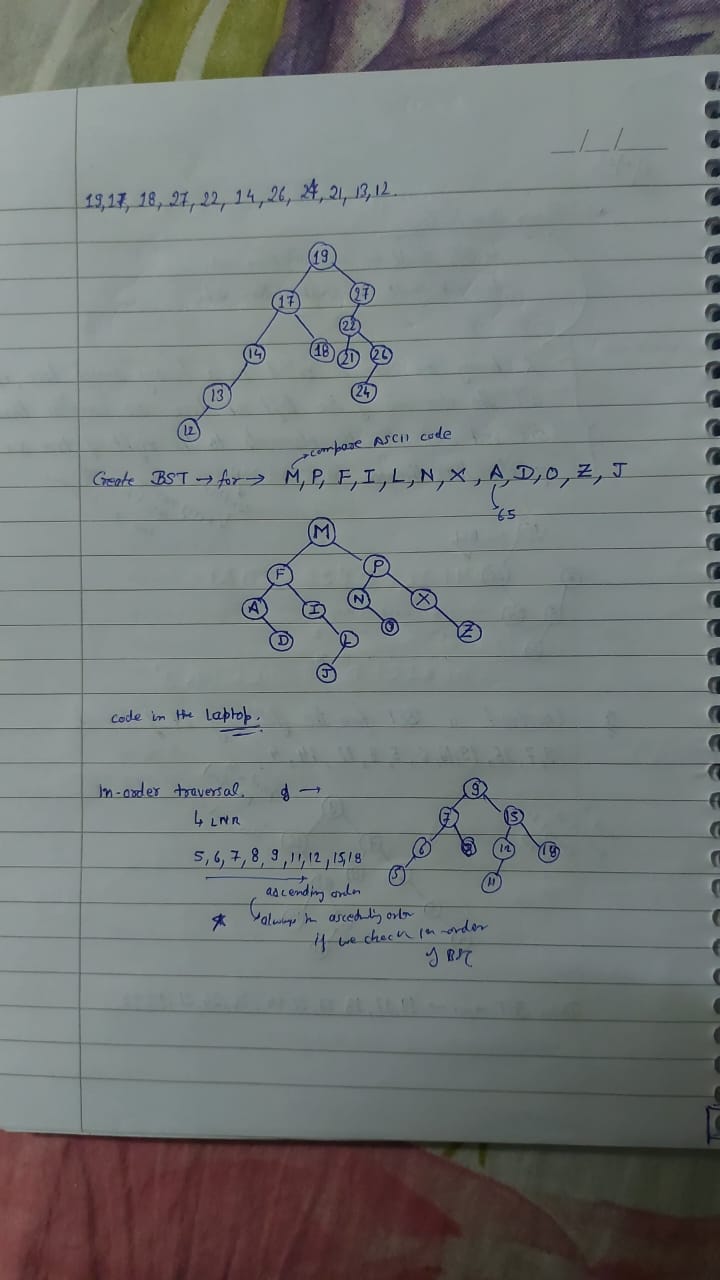 _/_/_
19, 17, 18, 27, 22, 14, 26, 24, 21, 13, 12.
19
17 27
22
14 18 21 26
13 24
12
compare ASCII code
Create BST → for → M, P, F, I, L, N, X, A, D, O, Z, J
65
M
F P
A I N X
D L O Z
J
code in the laptop.
In-order traversal. of →
↳ LNR
5, 6, 7, 8, 9, 11, 12, 15, 18
ascending order
* always in ascending order
if we check in-order
of BST
9
7 15
6 8 12 18
5 11